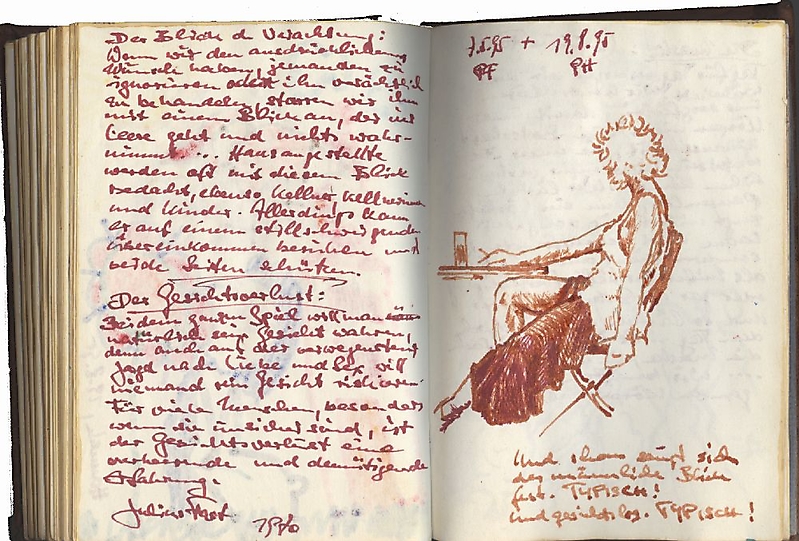 Der Blick d Verachtung:
Wenn wir den ausdrücklichen
Wunsch haben, jemanden zu
ignorieren oder ihn verächtlich
zu behandeln, starren wir ihn
mit einem Blick an, der ins
Leere geht und nichts wahr-
nimmt... Hausangestellte
werden oft mit diesem Blick
bedacht, ebenso Kellner, Kellnerinnen
und Kinder. Allerdings kann
er auf einem stillschweigenden
Übereinkommen beruhen und
beide Seiten schützen.
Der Gesichtsverlust:
Bei dem ganzen Spiel will man
natürlich sein Gesicht wahren,
denn auch auf der verwegensten
Jagd nach Liebe und Sex will
niemand sein Gesicht riskieren.
Für viele Menschen, besonders
wenn sie unsicher sind, ist
der Gesichtsverlust eine
verheerende und demütigende
Erfahrung.
Julius Fast
1970
7.5.95 + 19.8.95
PF PH
Und schon saugt sich
der männliche Blick
fest. TYPISCH!
Und gesichtslos. TYPISCH!